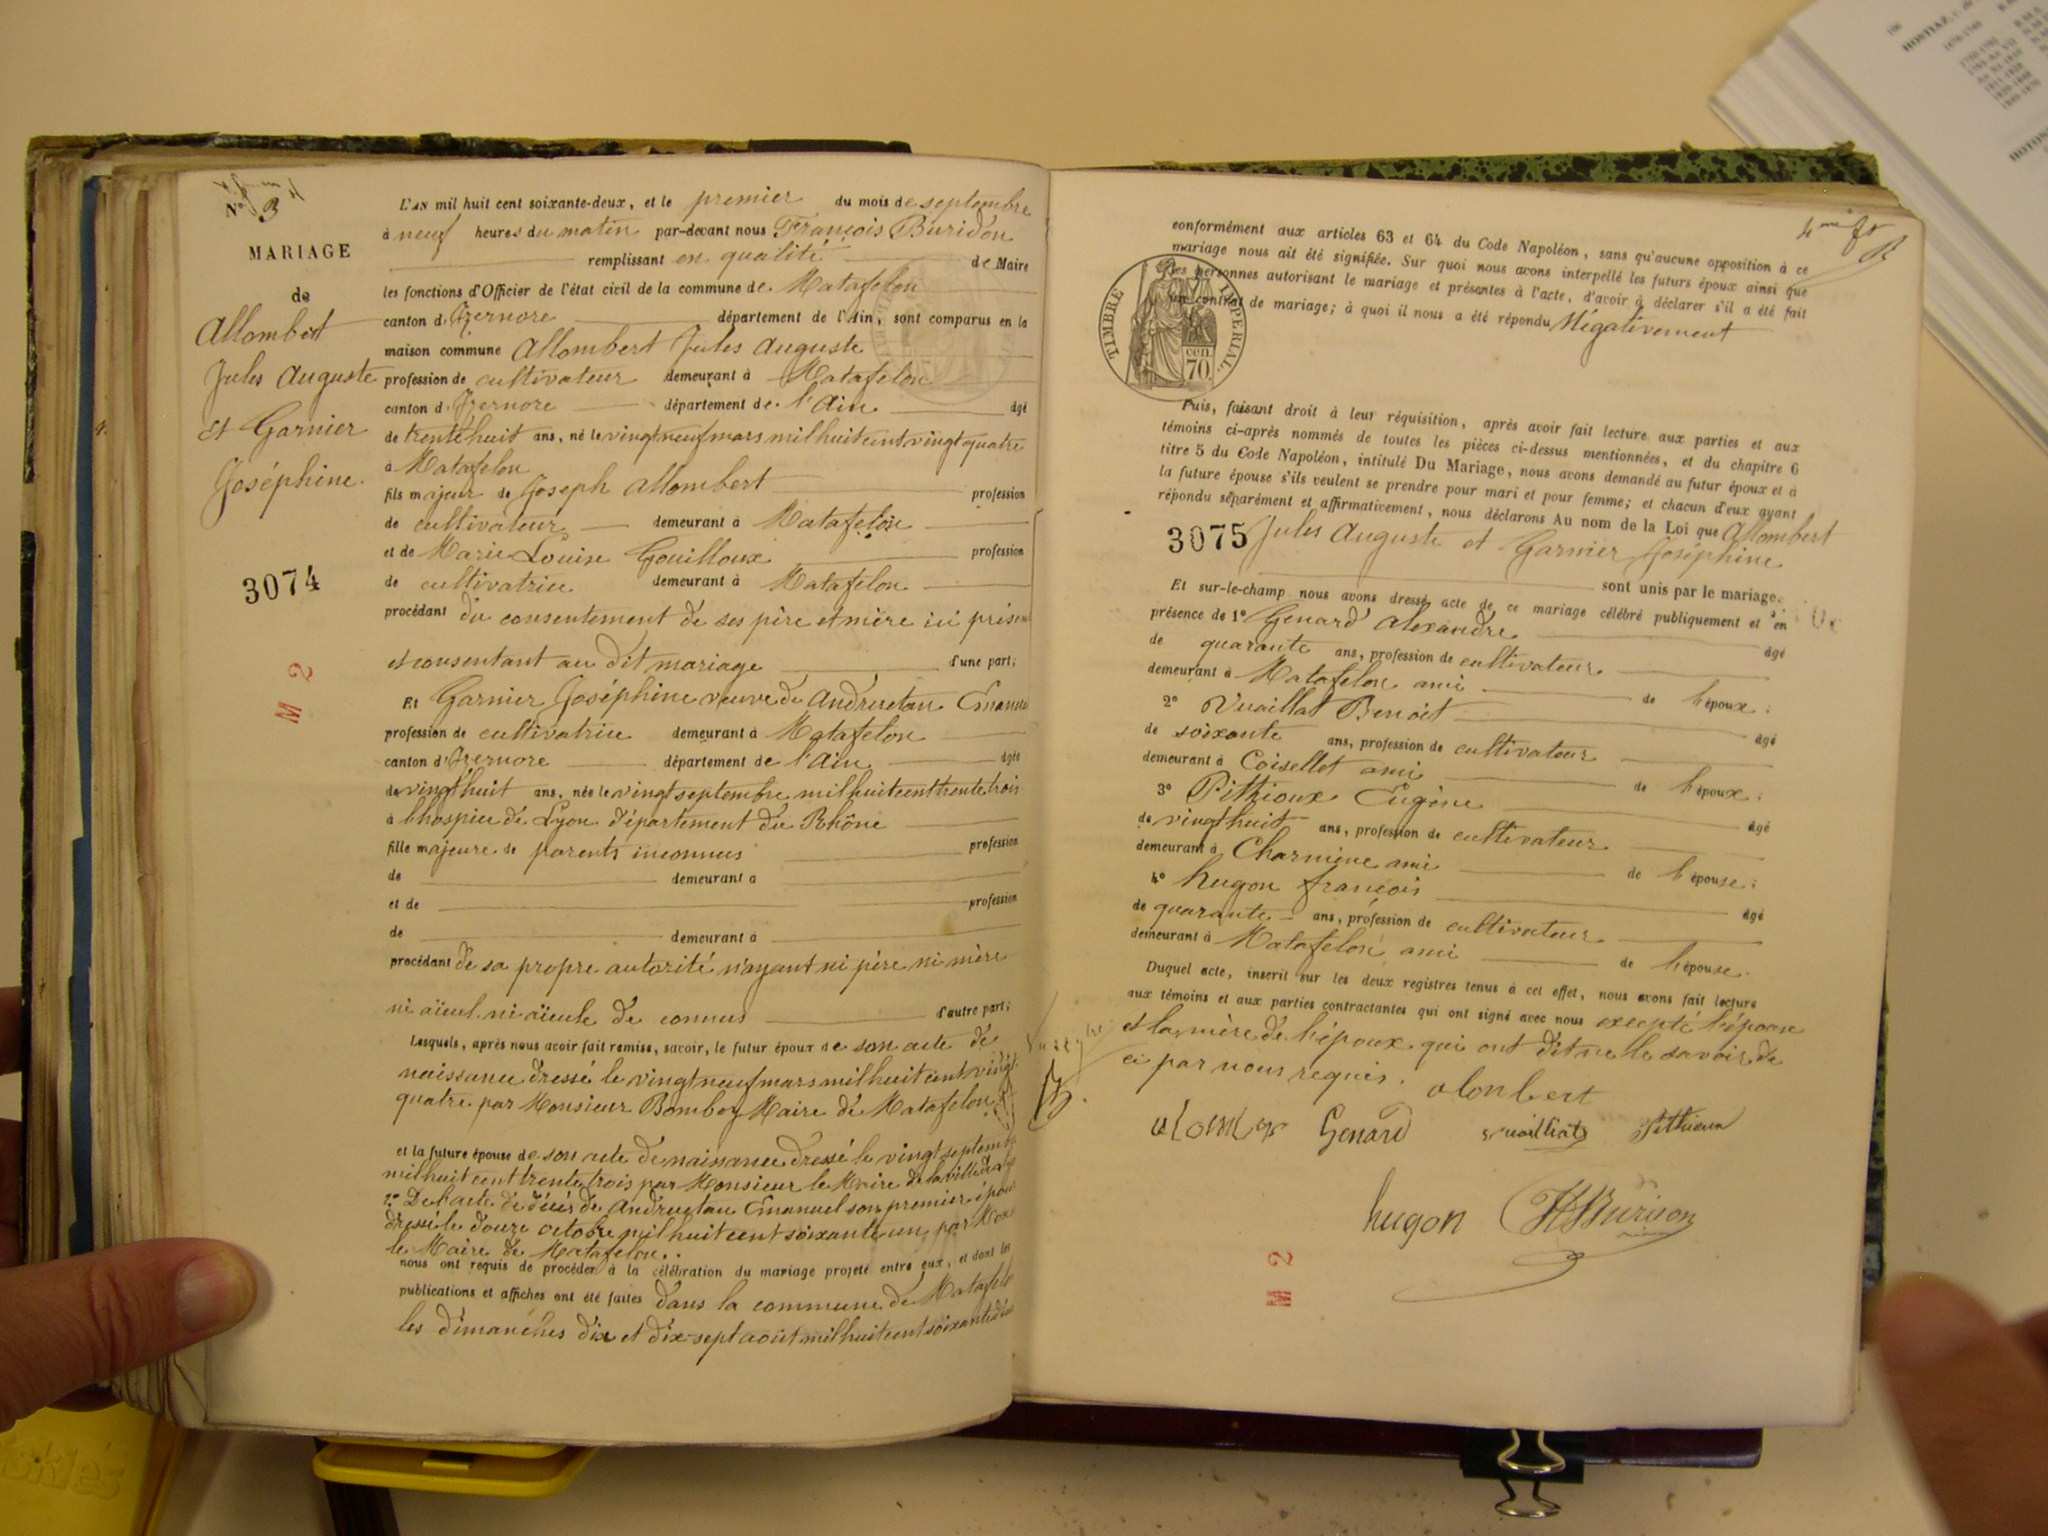 N° 3
MARIAGE
de
Allombert
Jules Auguste
Et Garnier
Joséphine.
3074
M 2
L'AN mil huit cent soixante-deux, et le premier du mois de septembre
à neuf heures du matin par-devant nous François Buridon
remplissant en qualité de Maire
les fonctions d'Officier de l'état civil de la commune de Matafelon
canton d'Izernore département de l'Ain, sont comparus en la
maison commune Allombert Jules Auguste
profession de cultivateur demeurant à Matafelon
canton d'Izernore département de l'Ain âgé
de trente huit ans, né le vingt neuf mars mil huit cent vingt quatre
à Matafelon
fils majeur de Joseph Allombert profession
de cultivateur demeurant à Matafelon
et de Marie Louise Gouilloux profession
de cultivatrice demeurant à Matafelon
procédant du consentement de ses père et mère ici présen
et consentant au dit mariage d'une part;
Et Garnier Joséphine veuve de Andruetan Emanuel
profession de cultivatrice demeurant à Matafelon
canton d'Izernore département de l'Ain âgée
de vingt huit ans, née le vingt septembre mil huit cent trente trois
à l'hospice de Lyon département du Rhône
fille majeure de parents inconnus profession
de demeurant a
et de profession
de demeurant à
procédant de sa propre autorité n'ayant ni père ni mère
ni aïeul ni aïeule de connus d'autre part;
Lesquels, après nous avoir fait remise, savoir, le futur époux de son acte de
naissance dressé le vingt neuf mars mil huit cent vingt
quatre par Monsieur Bomboy Maire de Matafelon
et la future épouse de son acte de naissance dressé le vingt septemb
mil huit cent trente trois par Monsieur le Maire de la ville de
2° De l'acte de décès de Andruetan Emanuel son premier époux
dressé le douze octobre mil huit cent soixante un par Mon
le Maire de Matafelon..
nous ont requis de procéder à la célébration du mariage projeté entre eux, et dont les
publications et affiches ont été faites dans la commune de Matafelo
les dimanches dix et dix-sept août mil huit cent soixante deux
conformément aux articles 63 et 64 du Code Napoléon, sans qu'aucune opposition à ce
mariage nous ait été signifiée. Sur quoi nous avons interpellé les futurs époux ainsi que
les personnes autorisant le mariage et présentes à l'acte, d'avoir à déclarer s'il a été fait
un contrat de mariage; à quoi il nous a été répondu Négativement
TIMBRE IMPERIAL.
cen. 70.
Puis, faisant droit à leur réquisition, après avoir fait lecture aux parties et aux
témoins ci-après nommés de toutes les pièces ci-dessus mentionnées, et du chapitre 6
titre 5 du Code Napoléon, intitulé Du Mariage, nous avons demandé au futur époux et à
la future épouse s'ils veulent se prendre pour mari et pour femme; et chacun d'eux ayant
répondu séparément et affirmativement, nous déclarons Au nom de la Loi que Allombert
3075 Jules Auguste et Garnier Joséphine
sont unis par le mariage.
Et sur-le-champ nous avons dressé acte de ce mariage célébré publiquement et en
présence de 1° Genard Alexandre âgé
de quarante ans, profession de cultivateur
demeurant à Matafelon ami de l'époux;
2° Vuaillat Benoit âgé
de soixante ans, profession de cultivateur
demeurant à Coisellet ami de l'époux;
3° Pithioux Eugène âgé
de vingt huit ans, profession de cultivateur
demeurant à Charnieux ami de l'épouse;
4° hugon françois âgé
de quarante ans, profession de cultivateur
demeurant à Matafelon ami de l'épouse.
Duquel acte, inscrit sur les deux registres tenus à cet effet, nous avons fait lecture
aux témoins et aux parties contractantes qui ont signé avec nous excepté l'épouse
et la mère de l'époux qui ont dit ne le savoir de
ci par nous requis.
alonbert
Genard
hugon
Buridon
M 2